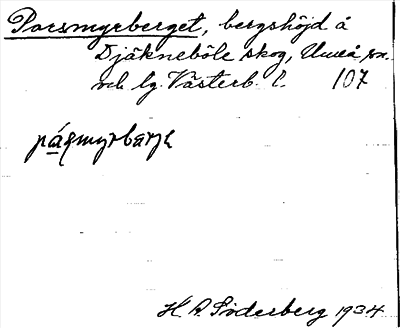 Porsmyrberget, bergshöjd å
Djäkneböle skog, Umeå sn.
och lg. Västerb. l. 107
H. A. Söderberg 1934